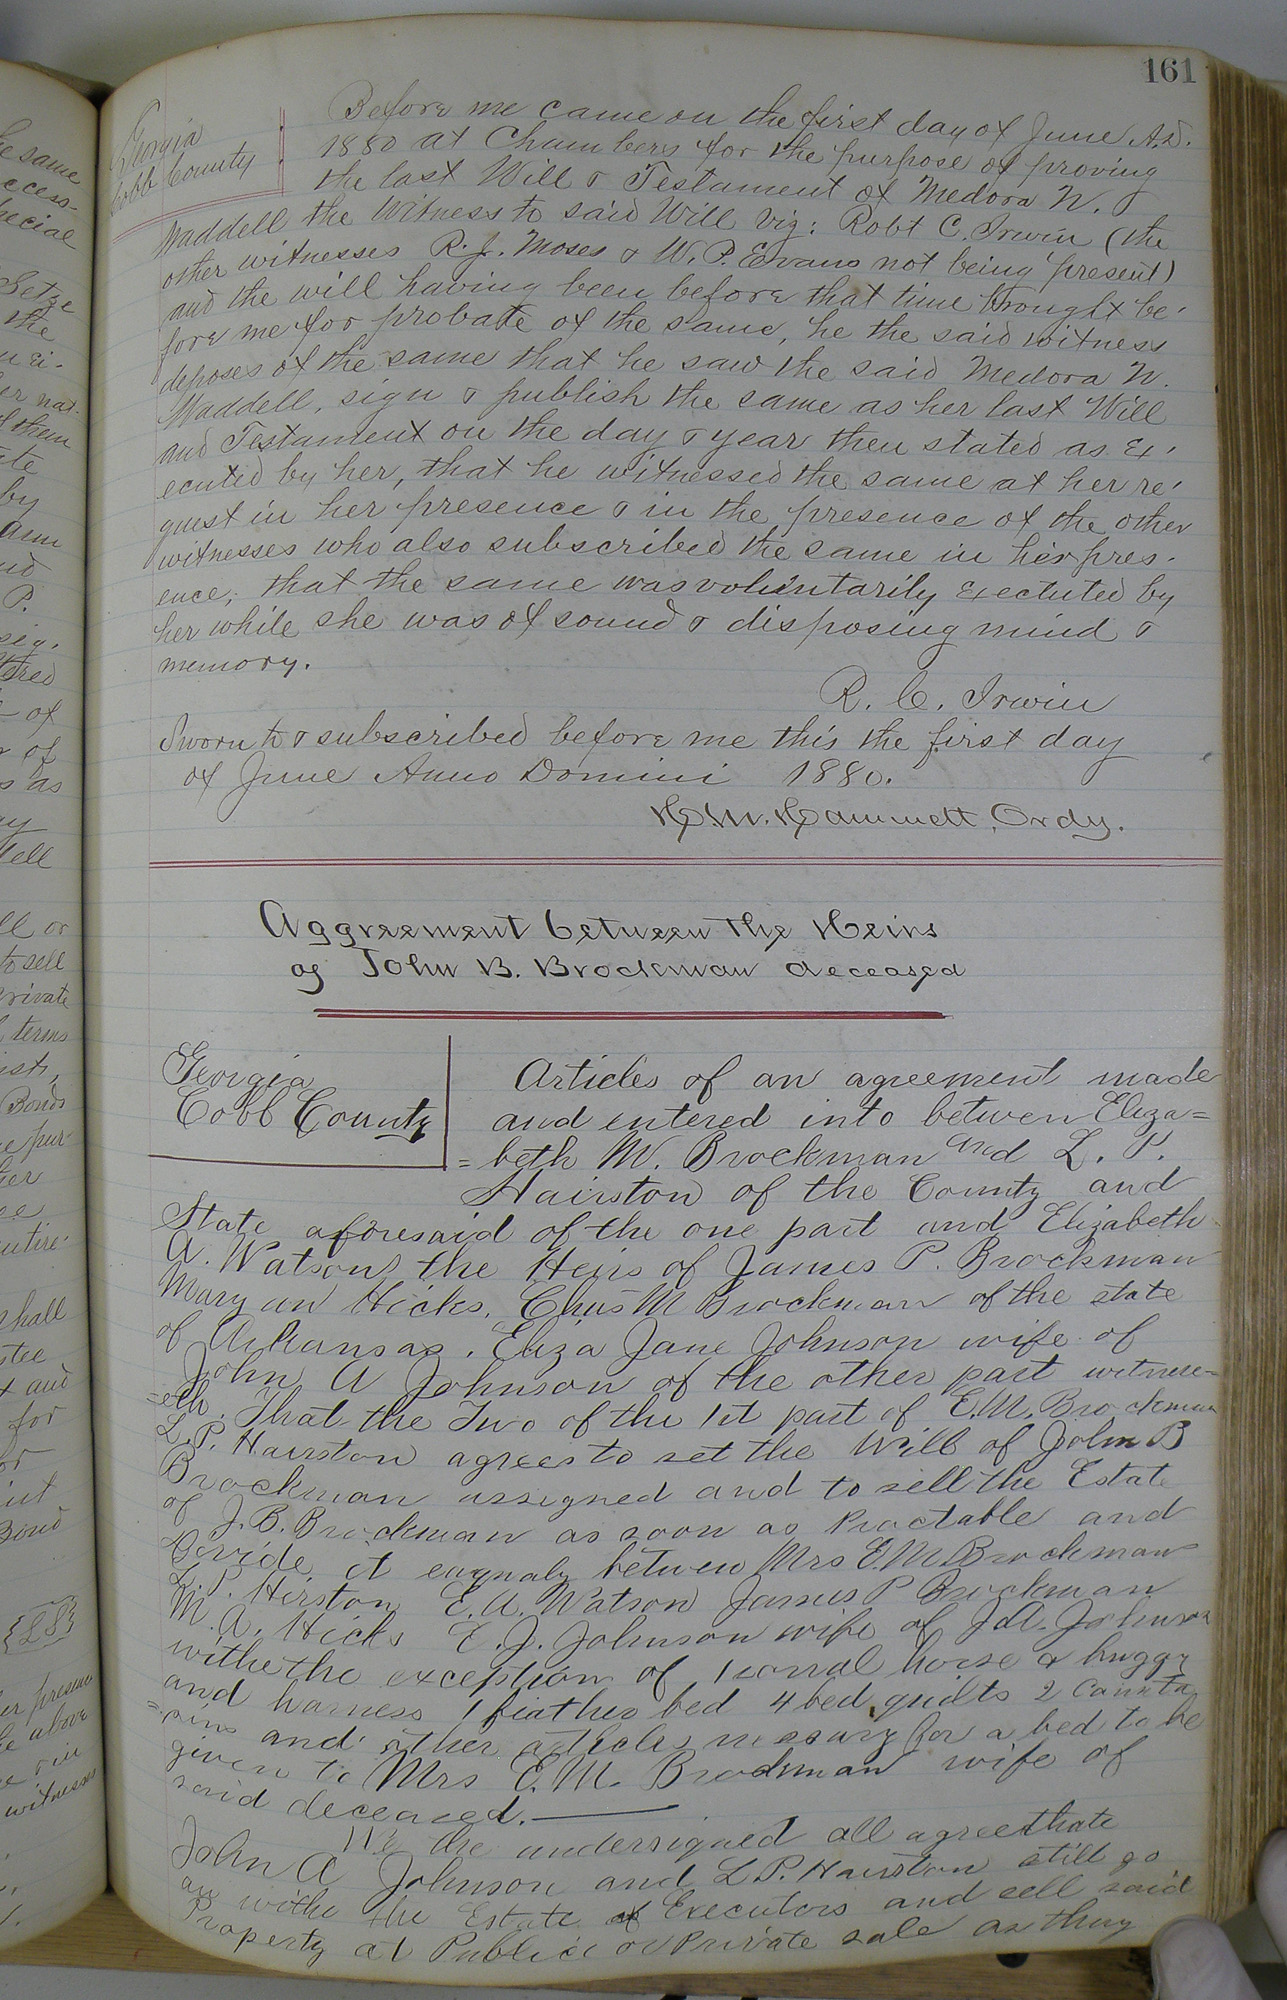 161
Georgia
Cobb County
Before me came on the first day of June A.D.
1880 at Chambers for the purpose of proving
the last Will & Testament of Medora N.
Waddell the Witness to said Will viz: Robt C. Irwin (the
other witnesses R. J. Moses & W. P. Evans not being present)
and the will having been before that time brought be-
fore me for probate of the same, he the said witness
deposes of the same that he saw the said Medora N.
Waddell, sign & publish the same as her last Will
and Testament on the day & year then stated as Ex-
ecuted by her, that he witnessed the same at her re-
quest in her presence & in the presence of the other
witnesses who also subscribed the same in her pres-
ence, that the same was voluntarily Exectuted by
her while she was of sound & disposing mind &
memory.
R. C. Irwin
Sworn to & subscribed before me this the first day
of June Anno Domini 1880.
H. M. Hammett, Ordy.
Aggreement between the Heirs
of John B. Brockman deceased
Georgia
Cobb County
Articles of an agreement made
and entered into between Eliza=
=beth M. Brockman and L. P.
Hairston of the County and
State aforesaid of the one part and Elizabeth
A. Watson the Heirs of James P. Brockman
Mary an Hicks, Chas M Brockman of the state
of Arkansas, Eliza Jane Johnson wife of
John A Johnson of the other part witness=
=eth. That the Two of the 1st part of E.M. Brockman
L. P. Hairston agrees to set the Will of John B
Brockman assigned and to sell the Estate
of J. B. Brockman as soon as Practable and
Devide it equaly between Mrs E. M. Brockman
L. P. Hirston E. A. Watson James P Brockman
M. A. Hicks E. J. Johnson wife of J. A. Johnson
withe the exception of 1 sorral horse & buggy
and harness 1 feather bed 4 bed quilts 2 Counta
=pins and other articles nessary for a bed to be
given to Mrs E. M. Brockman wife of
said deceased.
We the undersigned all agree thate
John A Johnson and L. P. Hairston still go
on withe the Estate as Executors and sell said
Property at Public or Private sale as they